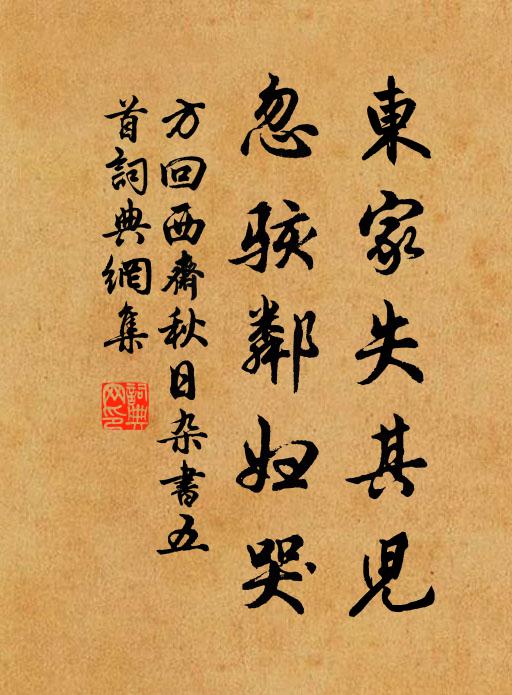 東家失其児
忽駭鄰妇哭
方回西齋秋日杂書五
首詞典網集
詞典
网印